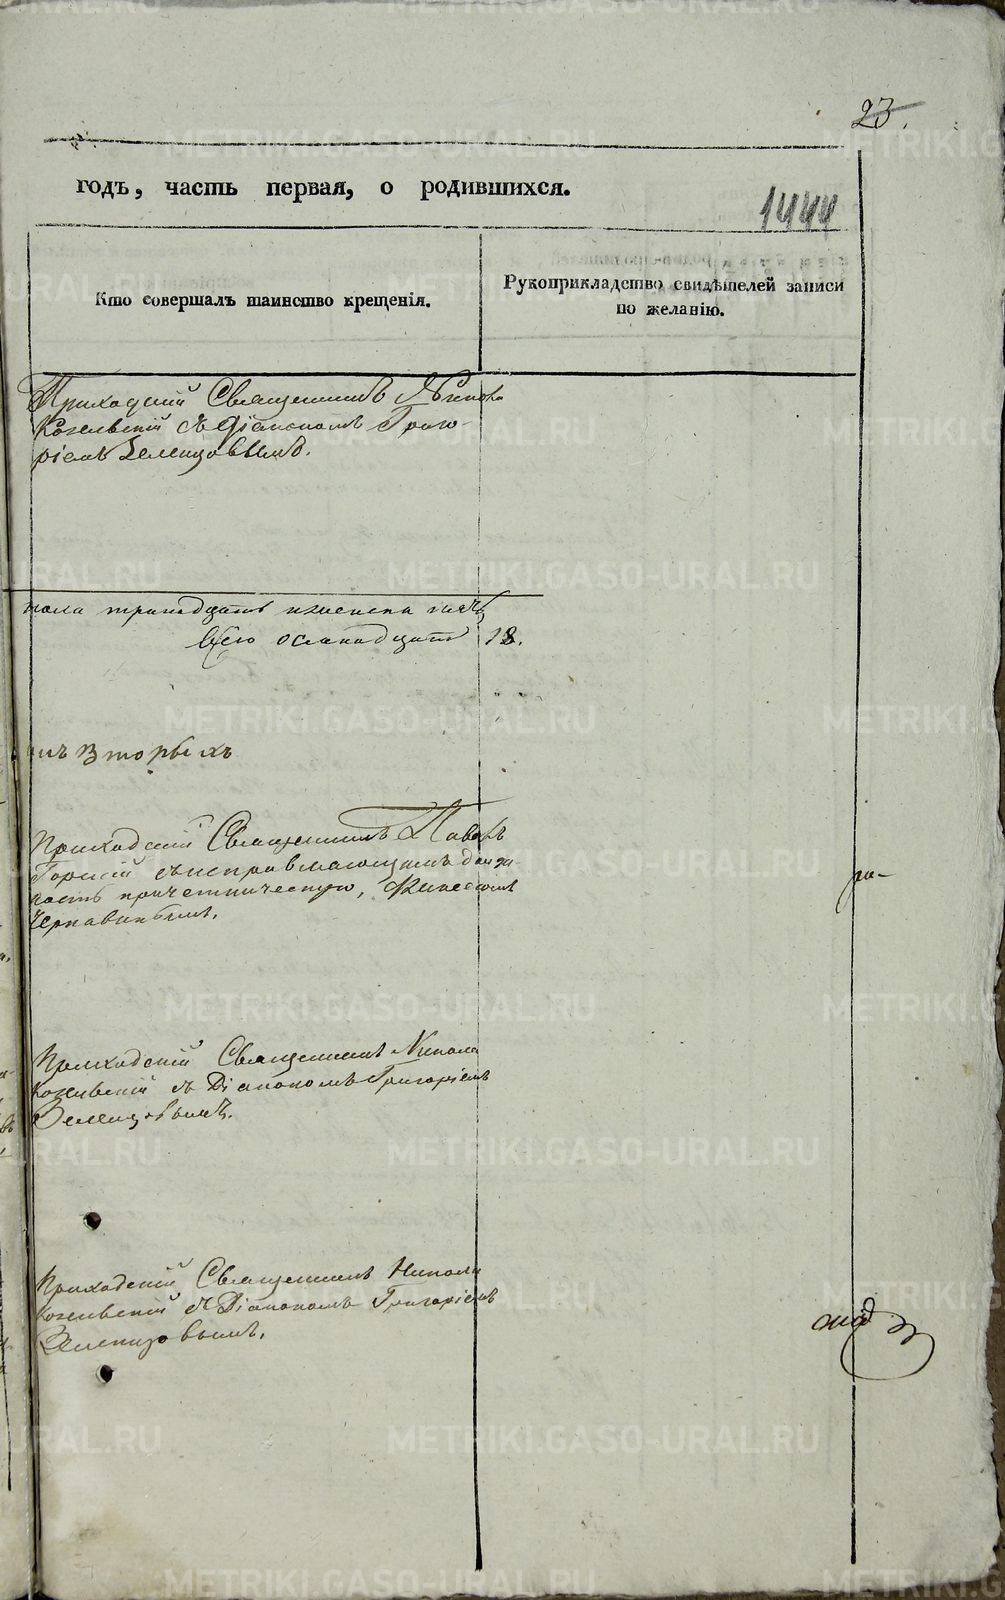 23.
годъ, часть первая, о родившихся.
1444
Кто совершалъ таинство крещенія.
Рукоприкладство свидѣтелей записи
по желанію.
Приходскій Священникъ
съ Діакономъ Григо-
ріемъ Зеленцовымъ.
пола тринадцать женска пять
всего осмнадцать 18.
Вторыхъ
Приходскій Священникъ Павелъ
Горскій съ исправляющимъ долж-
ность причетническую,
Чернавинымъ.
Приходскій Священникъ Никола
съ Діакономъ Григоріемъ
Зеленцовымъ.
Приходскій Священникъ Никола
съ Діакономъ Григоріемъ
Зеленцовымъ.
METRIKI.GASO-URAL.RU